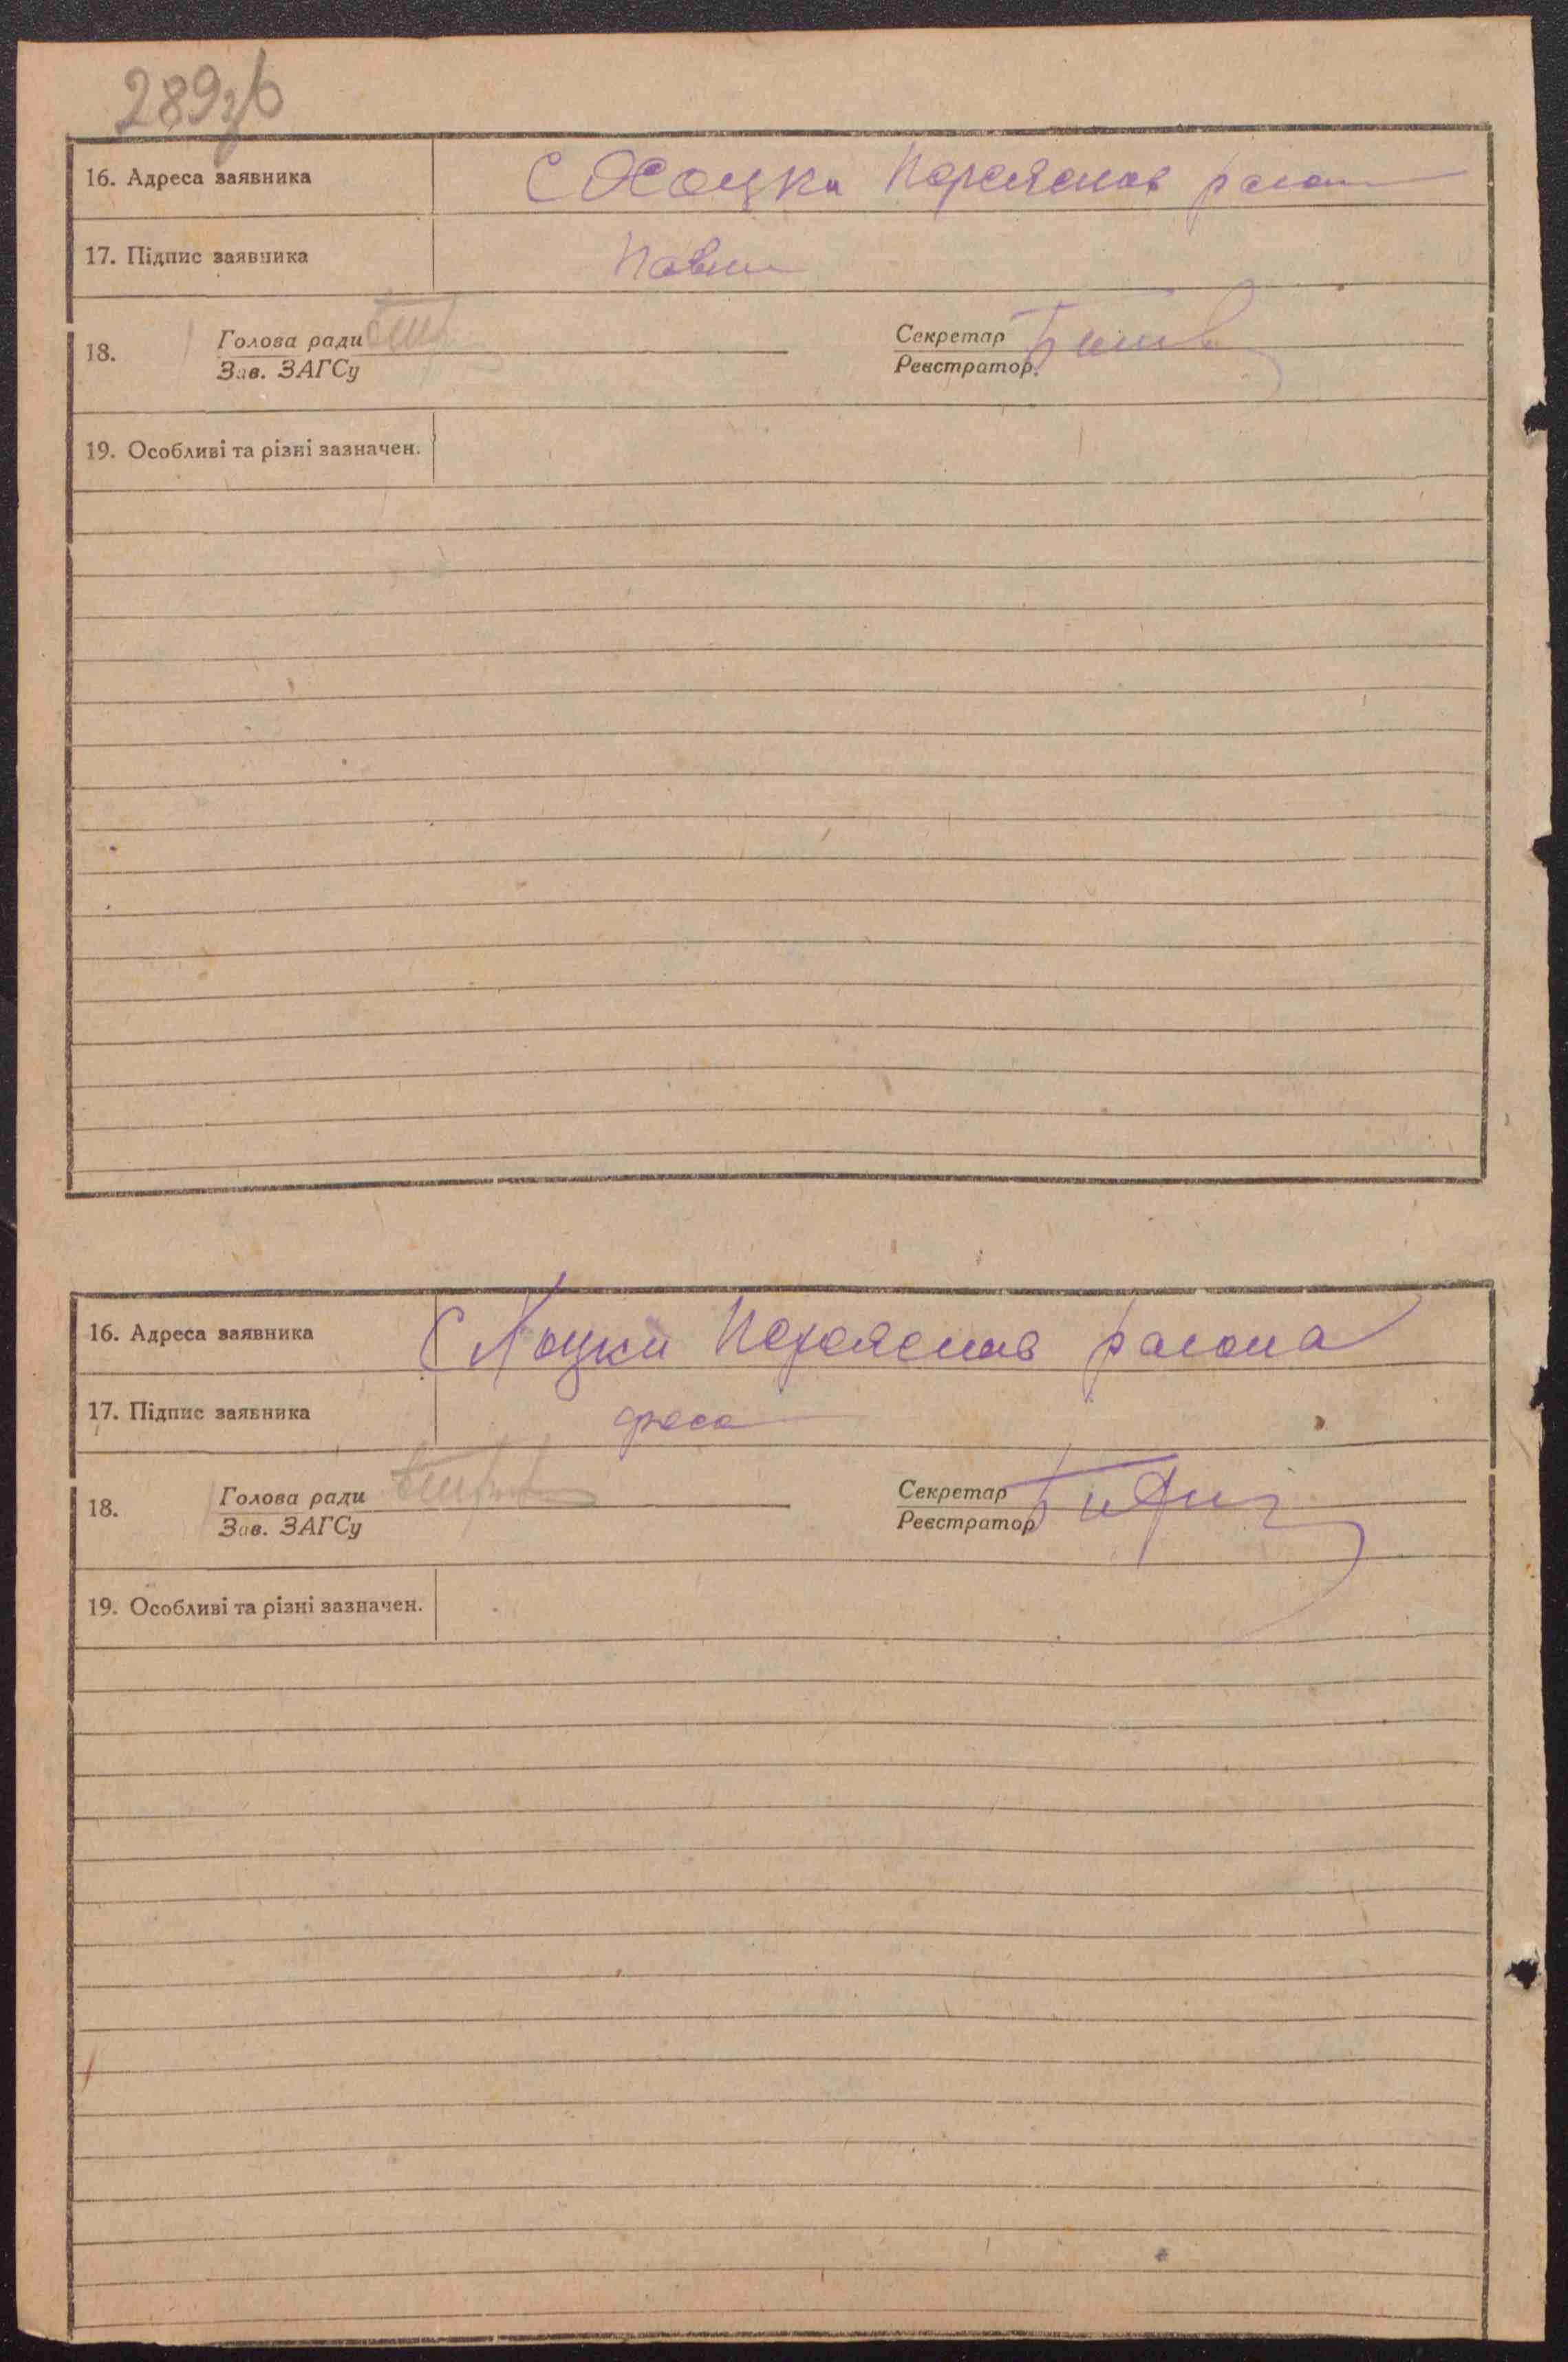 289зв
16. Адреса заявника С Хоцки Переяслав район
17. Підпис заявника
18. Голова ради Секретар
Зав. ЗАГСу Реєстратор
19. Особливі та різні зазначен.
16. Адреса заявника С Хоцки Переяслав района
17. Підпис заявника
18. Голова ради Секретар
Зав. ЗАГСу Реєстратор
19. Особливі та різні зазначен.